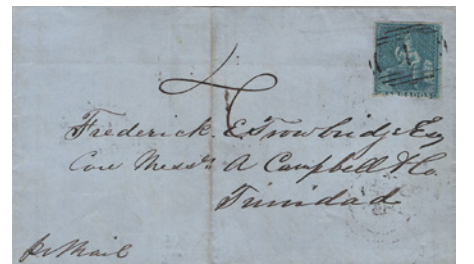 4
Frederick E Trowbridge Esq
Care Messrs A Campbell & Co.
Trinidad
pr Mail